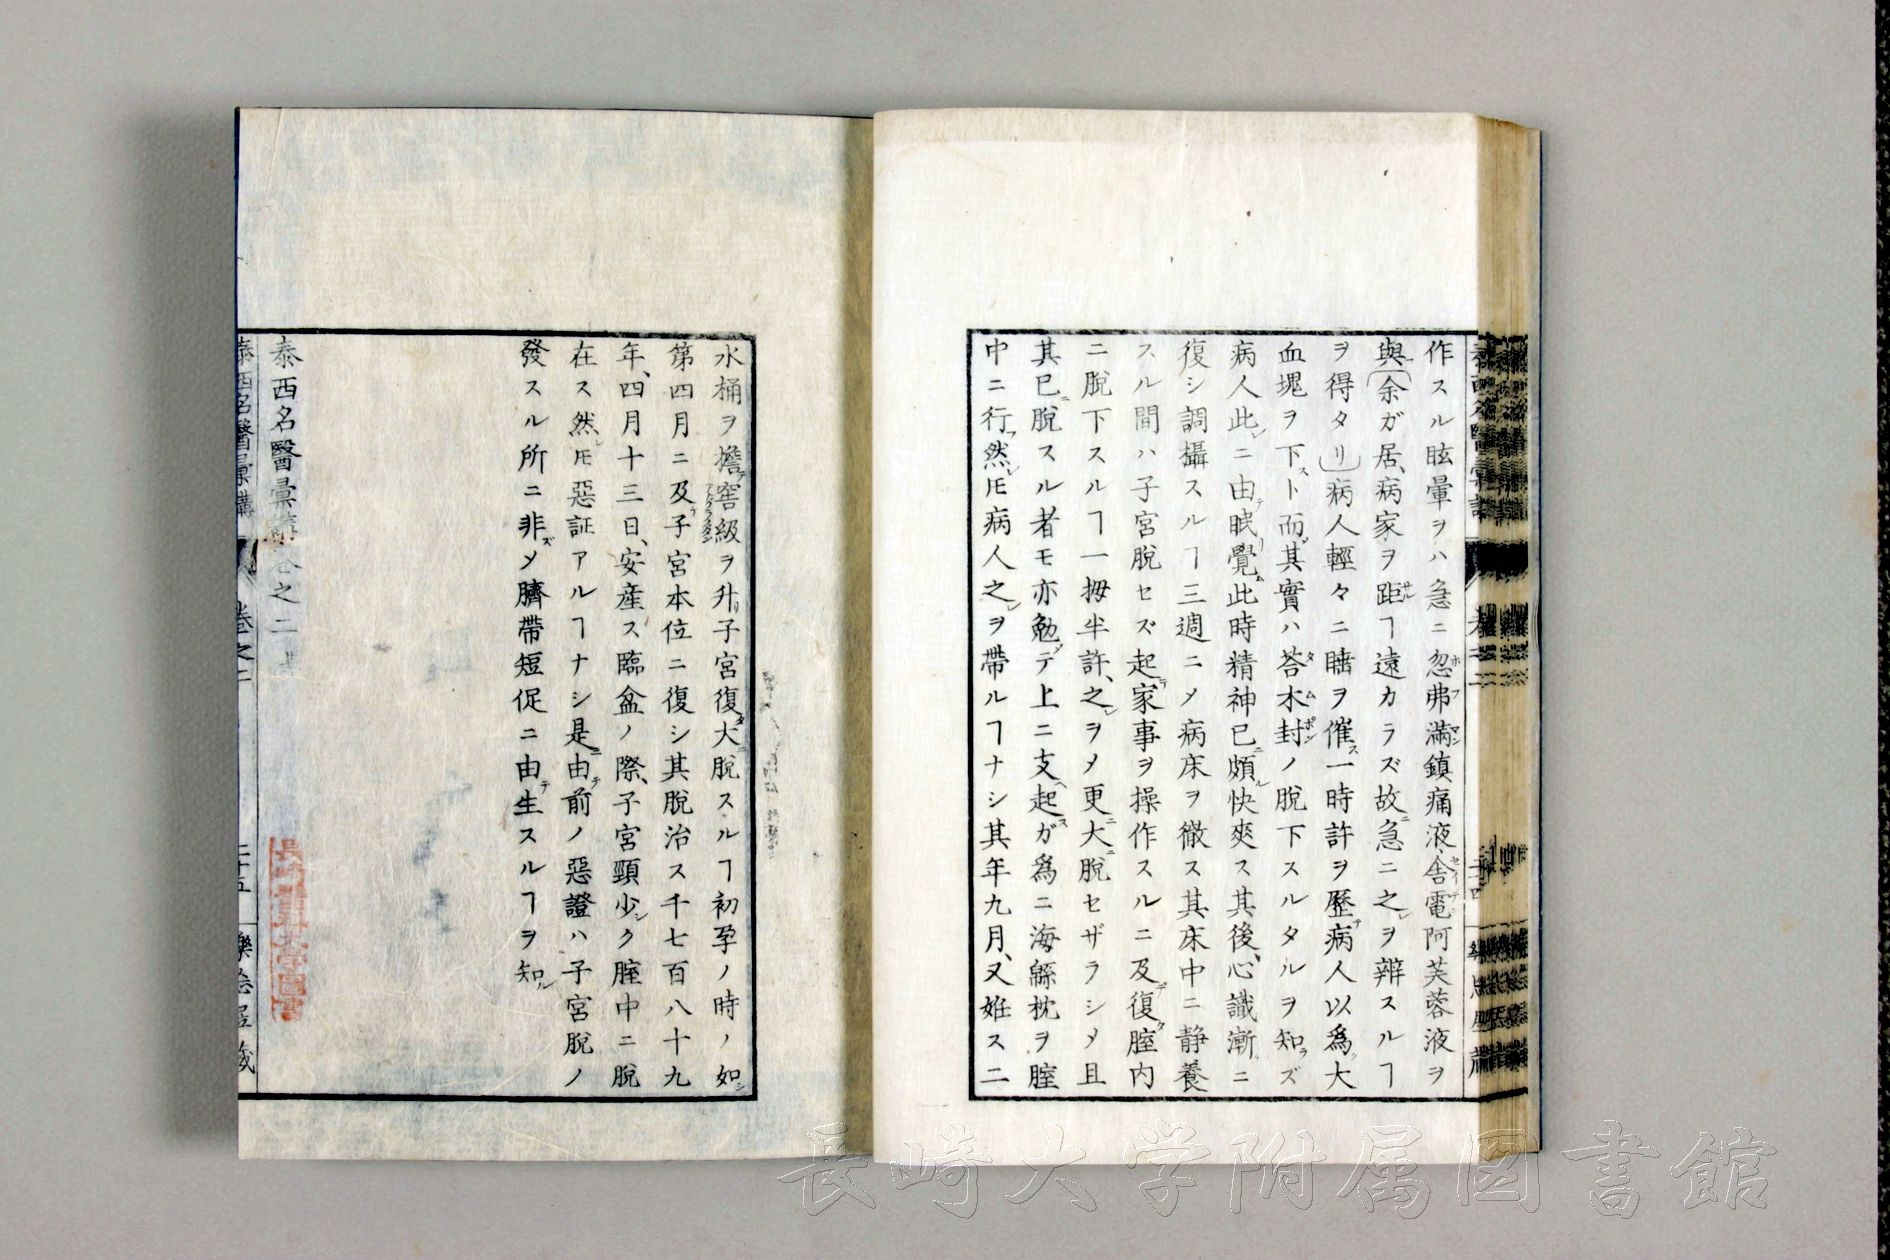 作スル眩暈ヲハ急ニ忽弗満鎮痛液舎電阿芙蓉液ヲ
與(余ガ居、病家ヲ距ヿ遠カラズ故急ニ之ヲ辨スルヿ
ヲ得タリ)病人輕々ニ睹ヲ催一時許ヲ歴病人以爲大
血塊ヲ下ト而其實ハ荅木封ノ脱下スルタルヲ知ズ
病人此ニ由眠覺此時精神已頗快爽ス其後、心識漸ニ
復シ調攝スルヿ三週ニメ病床ヲ徹ス其床中ニ静養
スル間ハ子宮脱セズ起家事ヲ操作スルニ及復腟内
ニ脱下スルヿ一拇半許、之ヲメ更大脱セザラシメ且
其已脱スル者モ亦勉テ上ニ支起ガ爲ニ海綿枕ヲ腟
中ニ行然𪜈病人之ヲ帶ルヿナシ其年九月、又姙ス二
水桶ヲ擔窖級ヲ升子宮復大脱スルヿ初孕ノ時ノ如
第四月ニ及子宮本位ニ復シ其脱治ス千七百八十九
年、四月十三日、安産ス臨盆ノ際、子宮頸少ク腟中ニ脱
在ス然𪜈惡証アルヿナシ是由前ノ惡證ハ子宮脱ノ
發スル所ニ非メ臍帶短促ニ由生スルヿヲ知
泰西名醫彙講卷之二
泰西名醫彙講 卷之二 二十五
長崎大学附属図書館